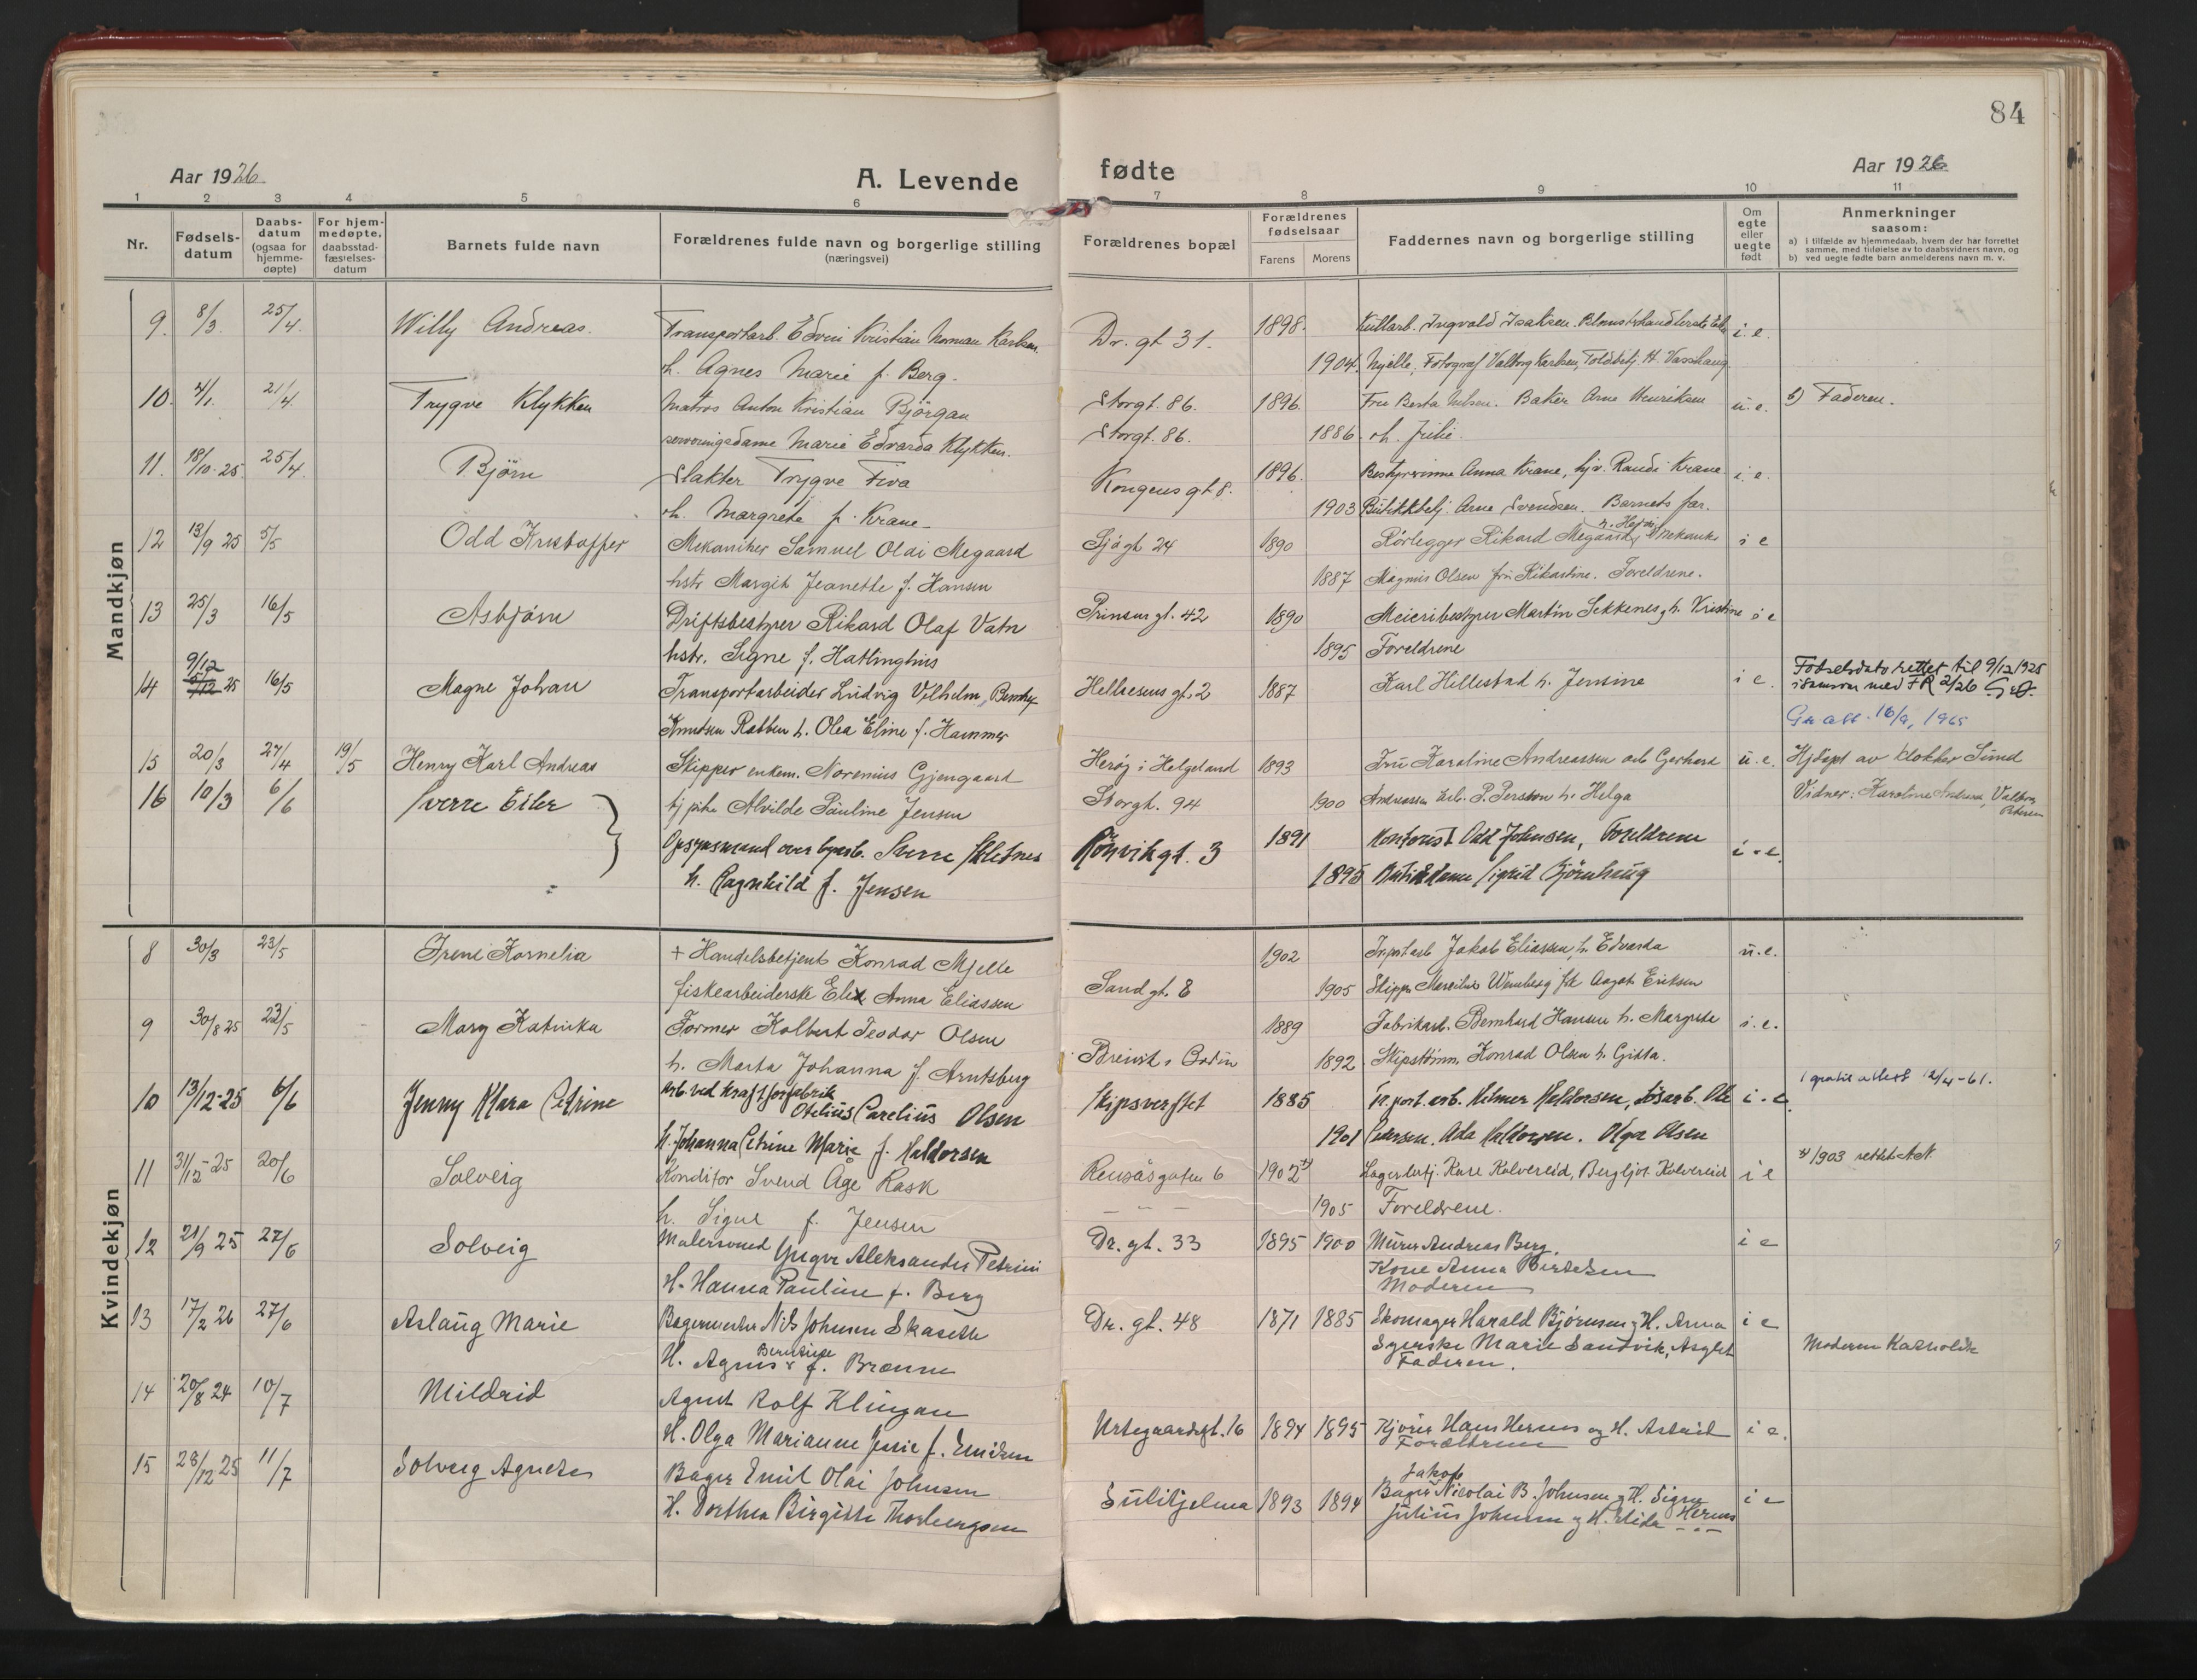 84
Aar 1926 A. Levende fødte Aar 1926
1 2 3 4 5 6 7 8 9 10 11
Nr. Fødsels-datum Daabs-datum (ogsaa for hjemme-døpte) For hjem-medøpte, daabsstad-fæstelses-datum Barnets fulde navn Forældrenes fulde navn og borgerlige stilling (næringsvei) Forældrenes bopæl Forældrenes fødselsaar Farens Morens Faddernes navn og borgerlige stilling Om egte eller uegte født Anmerkninger saasom:
a) i tilfælde av hjemmedaab, hvem der har forrettet samme, med tilføielse av to daabsvidners navn, og
b) ved uegte fødte barn anmelderens navn m. v.
Mandkjøn
9. 8/3. 25/4. Willy Andreas. Transportarb. Edvin Kristian Norman Karlsen. Dr. gt 31. 1898. Kullarb. Ingvold Isaksen. i. e.
h. Agnes Marie f. Berg. 1904. Njelle, Fotograf Valborg Karlsen, Toldbetj. H. Vasshaug
10. 4/1. 21/4. Trygve Klykken Matros Anton Kristian Björgan Storgt. 86. 1896. Fru Berta Nilsen. Baker Arne Henriksen u. e. b) Faderen.
serveringsdame Marie Edvarda Klykken. Storgt. 86. 1886.
11. 18/10. 25. 25/4. Bjørn Slakter Trygve Fiva Kongens gt 8. 1896. Bestyrerinne Anna Krane, hjv. Randi Krane. i. e.
h. Margrete f. Krane 1903 Butikkbetj. Arne Svendsen. Barnets far.
12 13/9 25 5/5 Odd Kristoffer Mekaniker Samuel Olai Megaard Sjøgt 24 1890 Rörlegger Rikard Megaard, i e
hstr Margit Jeanette f. Hansen 1887 Magnus Olsen fru Rikardine. Foreldrene.
13 25/3 16/5 Asbjörn Driftsbestyrer Rikard Olaf Vatn Prinsens gt. 42 1890 Meieribestyrer Martin Sekkenes, h. Kristine i e
hstr. Signe f. Hatlinghus 1895 Foreldrene
9/12
14 5/12 25 16/5 Magne Johan Transportarbeider Ludvig Vilhelm, Hellesens gt. 2 1887 Karl Hillestad h. Jensine i e. Fødselsdato rettet til 9/12 1925
i samsvar med FR 2/26
Knutsen Rabben h. Olea Eline f. Hammer 16/9, 1965
15 20/3 27/4 19/5 Henry Karl Andreas Skipper enkem. Norenius Gjengaard Herøy i Helgeland 1893 Fru Karoline Andreassen arb Gerhard u. e. Hjdøpt av klokker Sund
16 10/3 6/6 Sverre Eiler hj pike Alvilde Pauline Jensen Storgt. 94 1900 Andreassen Erl. P. Persson h. Helga Vidner: Karoline Andreassen, Valborg
Opsynsmand over byarb. Sverre Sletnes Rønvikgt. 3 1891 Kontorist Odd Johnsen, Foreldrene i. e.
h. Ragnhild f. Jensen 1895 Butikdame Sigrid Bjørnhaug
Kvindekjøn
8 30/3 23/5 Irene Kornelia + Handelsbetjent Konrad Mjelle 1902 Trsportarb Jakob Eliassen, h. Edvarda u. e.
fiskearbeiderske Elen Anna Eliassen Sandgt. 8 1905 Skipper Marcelius Wenneberg frk Aagot Eriksen
9 30/8 25 23/5 Mary Katinka Former Kolbert Teodor Olsen 1889 Fabrikarb. Bernhard Hansen h. Margrete i. e.
h. Marta Johanna f. Arntsberg Breivik i Bodin 1892 Skipstömm. Konrad Olsen h. Gitta.
10 13/12-25 6/6 Jenny Klara Petrine Arb. ved Kraftforfabrik Skipsverftet 1885 Trsport. arb. Helmer Haldorsen, Løsarb. Ole i. e. 1 gratis attest 12/4-61.
Otelius Carelius Olsen
h. Johanna Petrine Marie f. Haldorsen 1901 Pedersen. Ada Haldorsen. Olga Olsen
11 31/12-25 20/6 Solveig Konditor Svend Åge Rask Rensåsgaten 6 1902 x) Lagerbetj. Kåre Kolvereid, Bergljot Kolvereid i e x) 1903 rettet A.N.
h. Signe f. Jensen 1905 Foreldrene.
12 21/9 25 27/6 Solveig Malersvend Yngve Aleksander Petrini Dr. gt. 33 1895 1900 Murer Andreas Berg. i e
H. Hanna Pauline f. Berg Kone Anna Bertelsen
Moderen
13 17/2 26 27/6 Aslaug Marie Bagermester Nils Johnsen Skasette Dr. gt. 48 1871 1885 Skomager Harald Bjørnsen og H. Anna i e
H. Agnes f. Brænne Syerske Marie Sandvik, Moderen Katholik
Faderen.
14 20/8 24 10/7 Mildrid Agent Rolf Klingan Urtegaardsgt. 16 1894 1895 Kjører Hans Hernes og H. Astrid i e.
H. Olga Marianne Jensie f. Forældrene
15 28/12 25 11/7 Solveig Agnete Bager Emil Olai Johnsen Sulitjelma 1893 1894 Bager Nicolai B. Johnsen og H. Signy i e
Jakob
H. Dorthea Birgitte Thorbergsen Julius Johnsen og H. Alida Hernes